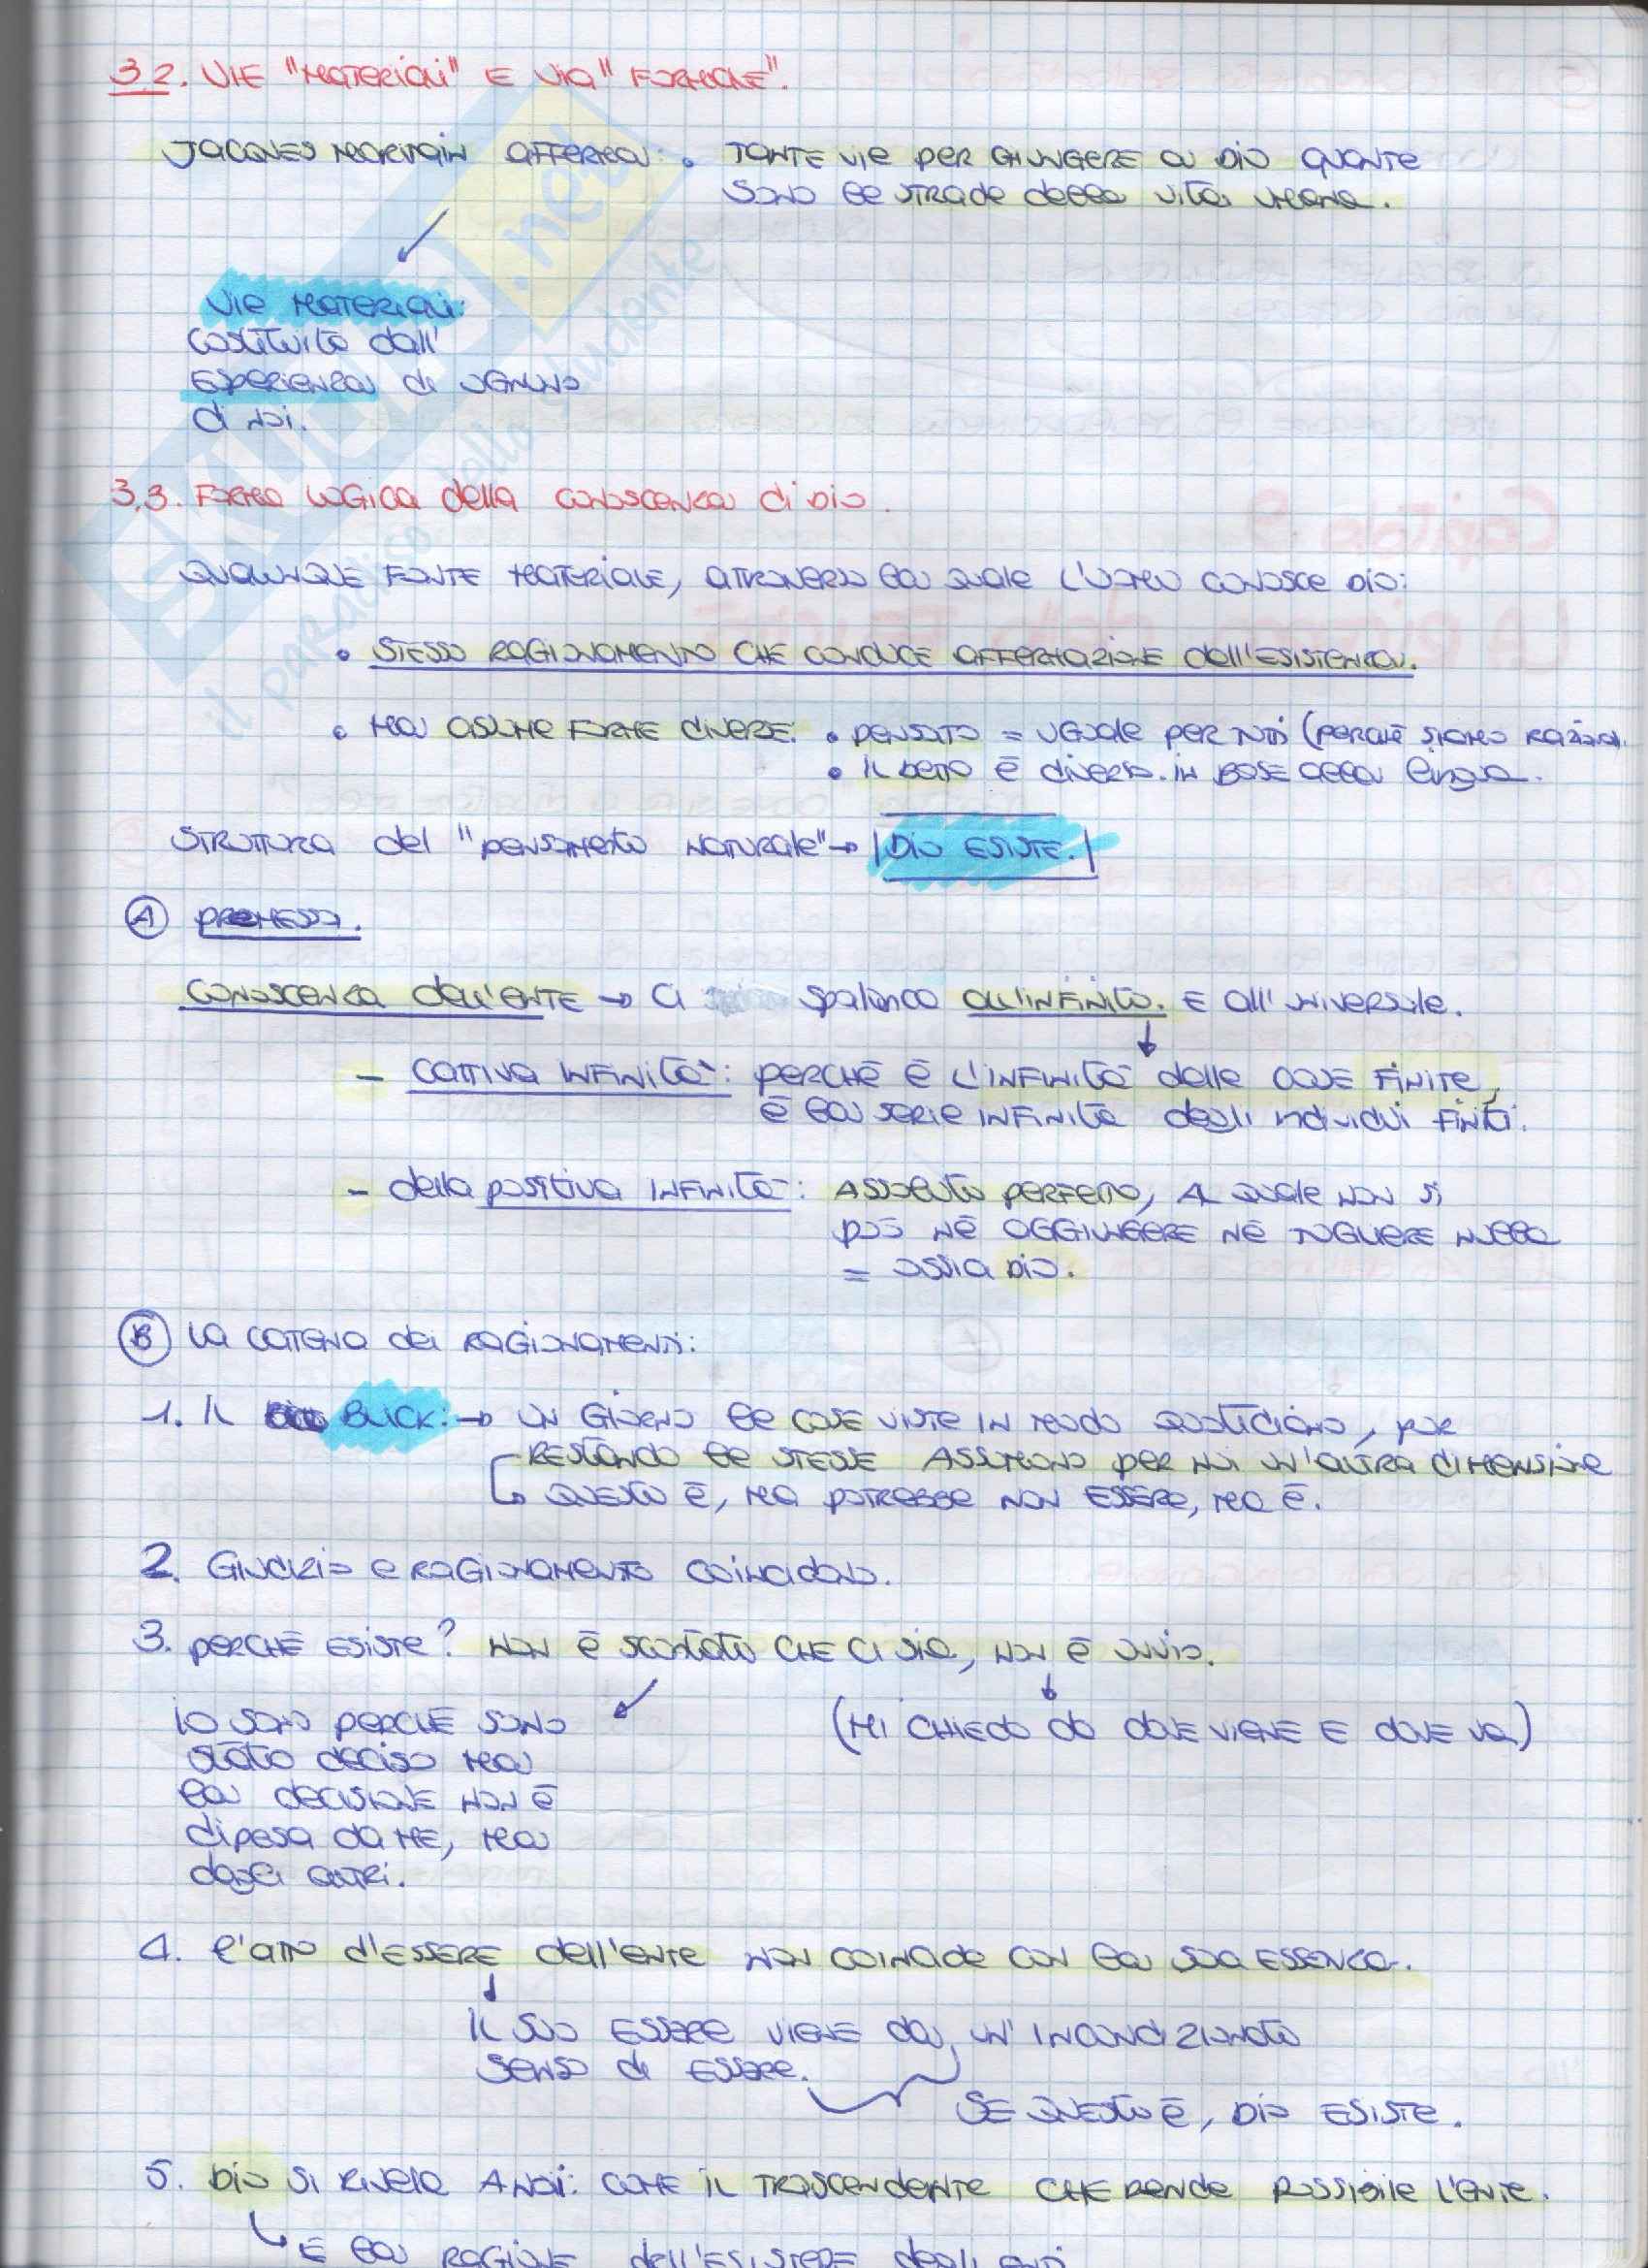 3.2. VIE "MATERIALI" E VIA "FORMALE".
JACQUES MARITAIN AFFERMA: • TANTE VIE PER GIUNGERE A DIO QUANTE
SONO LE STRADE della VITA UMANA.
VIE MATERIALI:
COSTITUITO dall'
ESPERIENZA di OGNUNO
di NOI.
3.3. FORMA LOGICA della CONOSCENZA di DIO.
QUALUNQUE FONTE MATERIALE, ATTRAVERSO LA QUALE L'UOMO CONOSCE DIO:
• STESSO RAGIONAMENTO CHE CONDUCE AFFERMAZIONE dell'ESISTENZA.
• MA ASSUME FORME DIVERSE: • PENSATO = UGUALE PER TUTTI (PERCHÈ SIAMO RAZIONALI
• IL DETTO È DIVERSO IN BASE ALLA LINGUA.
STRUTTURA del "PENSAMENTO NATURALE" → |DIO ESISTE.|
A PREMESSA.
CONOSCENZA dell'ENTE → CI SPALANCA ALL'INFINITO. E all'UNIVERSALE.
- CATTIVA INFINITÀ: PERCHÈ È L'INFINITÀ delle COSE FINITE,
È LA SERIE INFINITA degli INDIVIDUI FINITI.
- della POSITIVA INFINITÀ: ASSOLUTO PERFETTO, AL QUALE NON SI
PUÒ NÈ AGGIUNGERE NÈ TOGLIERE NULLA
= OSSIA DIO.
B LA CATENA dei RAGIONAMENTI:
1. IL BLICK: → UN GIORNO LE COSE VISTE IN MODO QUOTIDIANO, PUR
RESTANDO LE STESSE ASSUMONO PER NOI UN'ALTRA DIMENSIONE
QUESTO È, MA POTREBBE NON ESSERE, MA È.
2. GIUDIZIO E RAGIONAMENTO COINCIDONO.
3. PERCHÈ ESISTE? NON È SCONTATO CHE CI SIA, NON È OVVIO.
IO SONO PERCHÈ SONO
STATO DECISO MA
LA DECISIONE NON È
DIPESA DA ME, MA
DAGLI ALTRI.
(MI CHIEDO DA DOVE VIENE E DOVE VA)
4. L'ATTO D'ESSERE dell'ENTE NON COINCIDE CON LA SUA ESSENZA.
IL SUO ESSERE VIENE DA UN'INCONDIZIONATO
SENSO di ESSERE.
SE QUESTO È, DIO ESISTE.
5. DIO SI RIVELA A NOI: COME IL TRASCENDENTE CHE RENDE POSSIBILE L'ENTE.
È LA RAGIONE dell'ESISTERE degli ENTI
SKUOLA.net
il paradiso dello studente